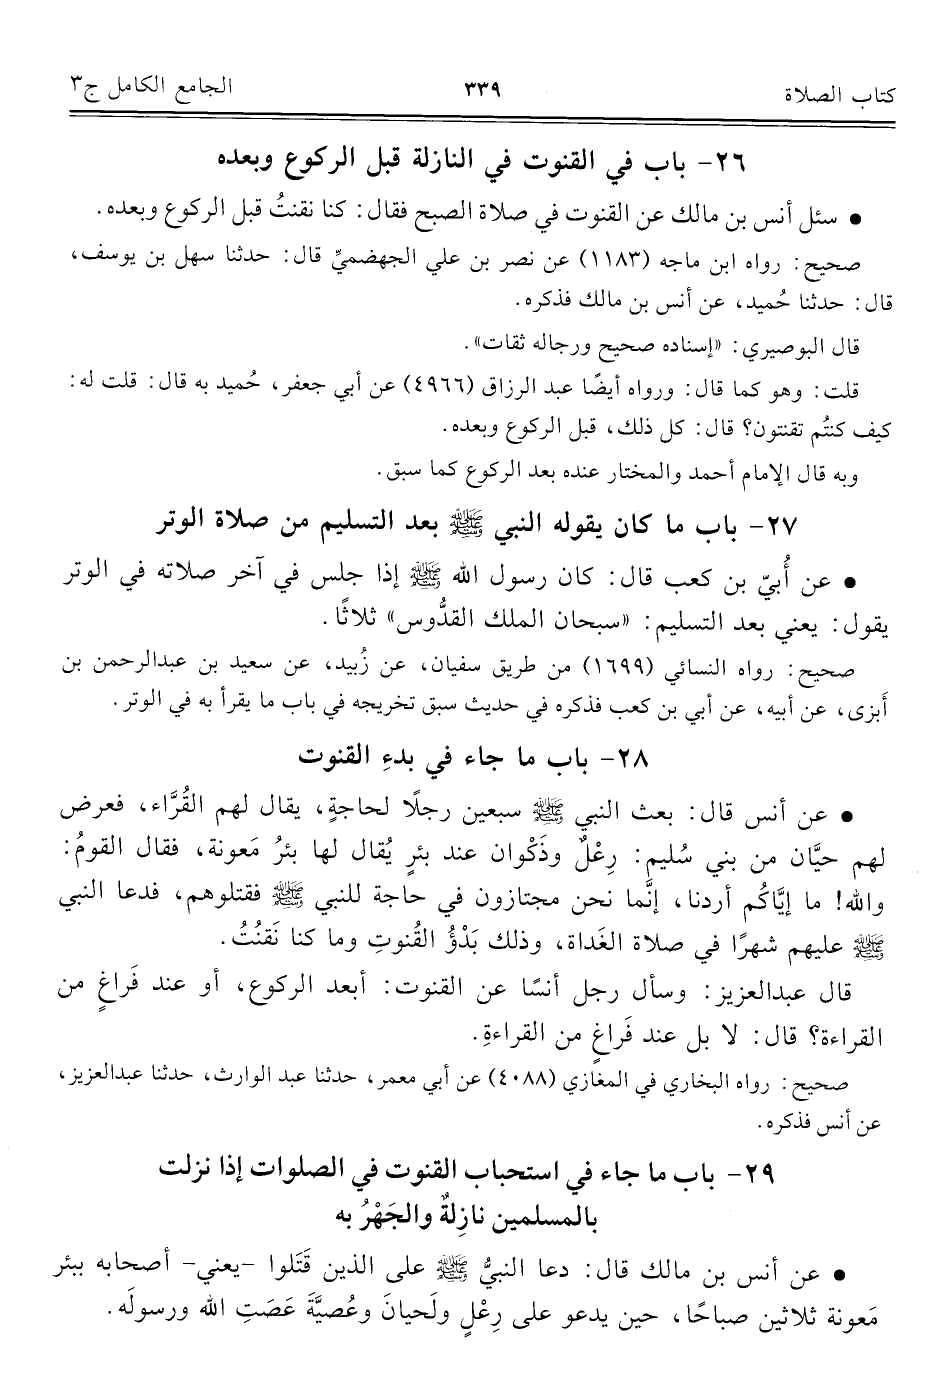 كتاب الصلاة ٣٣٩ الجامع الكامل ج٣
٢٦- باب في القنوت في النازلة قبل الركوع وبعده
• سئل أنس بن مالك عن القنوت في صلاة الصبح فقال: كنا نقنتُ قبل الركوع وبعده.
صحيح: رواه ابن ماجه (١١٨٣) عن نصر بن علي الجهضميِّ قال: حدثنا سهل بن يوسف،
قال: حدثنا حُميد، عن أنس بن مالك فذكره.
قال البوصيري: «إسناده صحيح ورجاله ثقات».
قلت: وهو كما قال: ورواه أيضًا عبد الرزاق (٤٩٦٦) عن أبي جعفر، حُميد به قال: قلت له:
كيف كنتُم تقنتون؟ قال: كل ذلك، قبل الركوع وبعده.
وبه قال الإمام أحمد والمختار عنده بعد الركوع كما سبق.
٢٧- باب ما كان يقوله النبي ﷺ بعد التسليم من صلاة الوتر
• عن أُبيّ بن كعب قال: كان رسول الله ﷺ إذا جلس في آخر صلاته في الوتر
يقول: يعني بعد التسليم: «سبحان الملك القدُّوس» ثلاثًا.
صحيح: رواه النسائي (١٦٩٩) من طريق سفيان، عن زُبيد، عن سعيد بن عبدالرحمن بن
أبزى، عن أبيه، عن أبي بن كعب فذكره في حديث سبق تخريجه في باب ما يقرأ به في الوتر.
٢٨- باب ما جاء في بدءِ القنوت
• عن أنس قال: بعث النبي ﷺ سبعين رجلًا لحاجةٍ، يقال لهم القُرَّاء، فعرض
لهم حيَّان من بني سُليم: رِعْلٌ وذَكْوان عند بئرٍ يُقال لها بئرُ مَعونة، فقال القومُ:
والله! ما إيَّاكُم أردنا، إنَّما نحن مجتازون في حاجة للنبي ﷺ فقتلوهم، فدعا النبي
ﷺ عليهم شهرًا في صلاة الغَداة، وذلك بَدْؤُ القُنوتِ وما كنا نَقنُتُ.
قال عبدالعزيز: وسأل رجل أنسًا عن القنوت: أبعد الركوع، أو عند فَراغٍ من
القراءة؟ قال: لا بل عند فَراغٍ من القراءةِ.
صحيح: رواه البخاري في المغازي (٤٠٨٨) عن أبي معمر، حدثنا عبد الوارث، حدثنا عبدالعزيز،
عن أنس فذكره.
٢٩- باب ما جاء في استحباب القنوت في الصلوات إذا نزلت
بالمسلمين نازِلةٌ والجَهْرُ به
• عن أنس بن مالك قال: دعا النبيُّ ﷺ على الذين قَتَلوا -يعني- أصحابه ببئر
مَعونة ثلاثين صباحًا، حين يدعو على رِعْلٍ ولَحيانَ وعُصيَّةَ عَصَتِ الله ورسولَه.